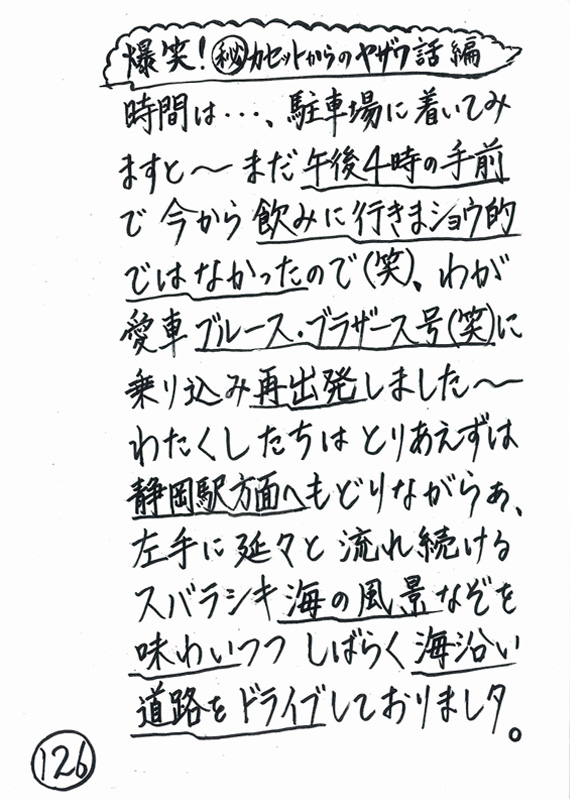 爆笑!㊙カセットからのヤザワ話編
時間は…、駐車場に着いてみ
ますと〜まだ午後4時の手前
で今から飲みに行きまショウ的
ではなかったので(笑)、わが
愛車ブルース・ブラザース号(笑)に
乗り込み再出発しました〜
わたくしたちはとりあえずは
静岡駅方面へもどりながらぁ、
左手に延々と流れ続ける
スバラシキ海の風景なぞを
味わいつつしばらく海沿い
道路をドライブしておりましタ。
126